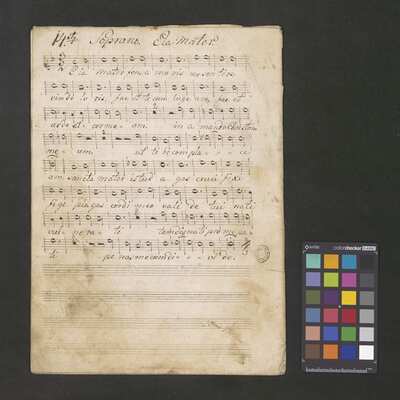 144 Soprano. Eia mater
Eia mater fons a moris me sentire
vim do lo ris, fac ut te cum luge am, fac ut
arde at cor me am in a mando Christum
me um ut si bi compla - ce
am sancta mater istud a gas cruci fixi
fige plagas cordi meo vale de tui nati
vul ne ra - ti tam dignati pro me pa -
ti pe nas mecum di - vi de.
colorchecker